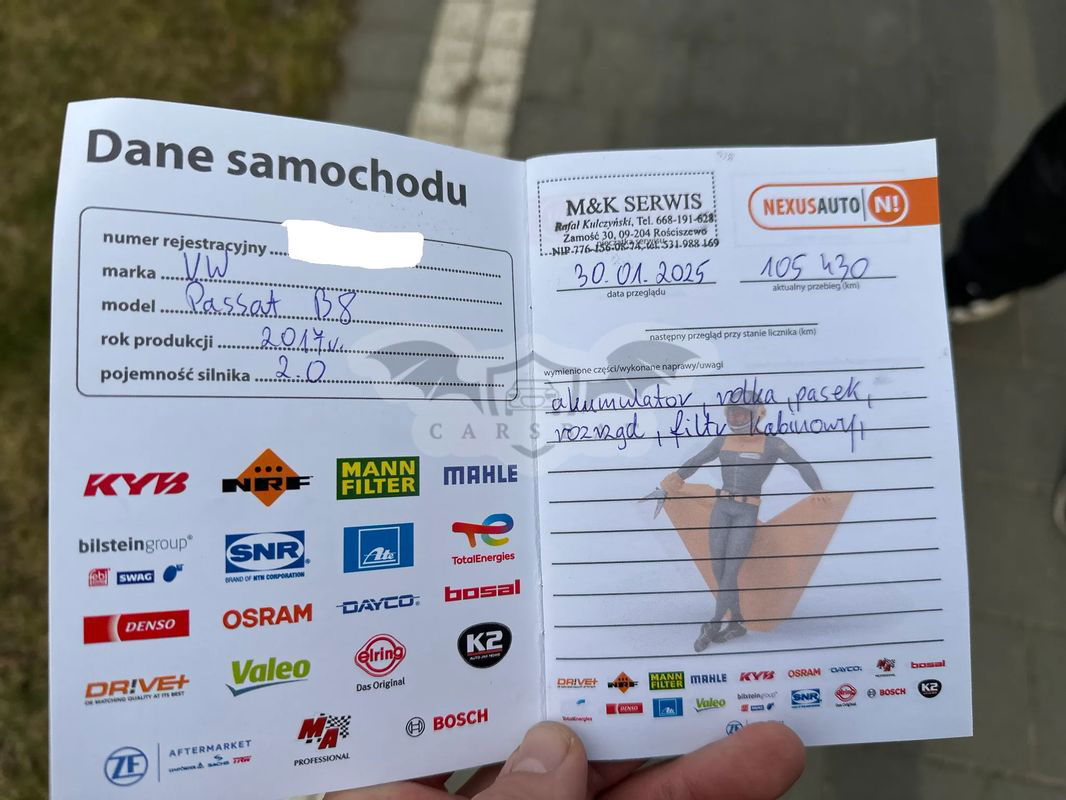 Dane samochodu
numer rejestracyjny
marka VW
model Passat B8
rok produkcji 2017r.
pojemność silnika 2.0
KYB NRF MANN FILTER MAHLE
bilsteingroup® SNR ® BRAND OF NTN CORPORATION Ate TotalEnergies
febi SWAG
DENSO OSRAM DAYCO. bosal
DR!VE+ OE MATCHING QUALITY AT ITS BEST Valeo elring Das Original K2
MA PROFESSIONAL BOSCH
ZF AFTERMARKET
LEMFÖRDER SACHS TRW
M&K SERWIS
Rafał Kulczyński, Tel. 668-191-628
Zamość 30, 09-204 Rościszewo
NIP 776-156-08-74, tel. 531 988 169
NEXUSAUTO N!
30.01.2025
data przeglądu
105 430
aktualny przebieg (km)
następny przegląd przy stanie licznika (km)
wymienione części/wykonane naprawy/uwagi
akumulator, rolka, pasek,
rozrząd, filtr kabinowy,
CARS
DR!VE+ NRF MANN FILTER MAHLE KYB OSRAM DAYCO. MA PROFESSIONAL bosal
TotalEnergies DENSO Ate Valeo bilsteingroup® SNR elring Das Original BOSCH K2
ZF